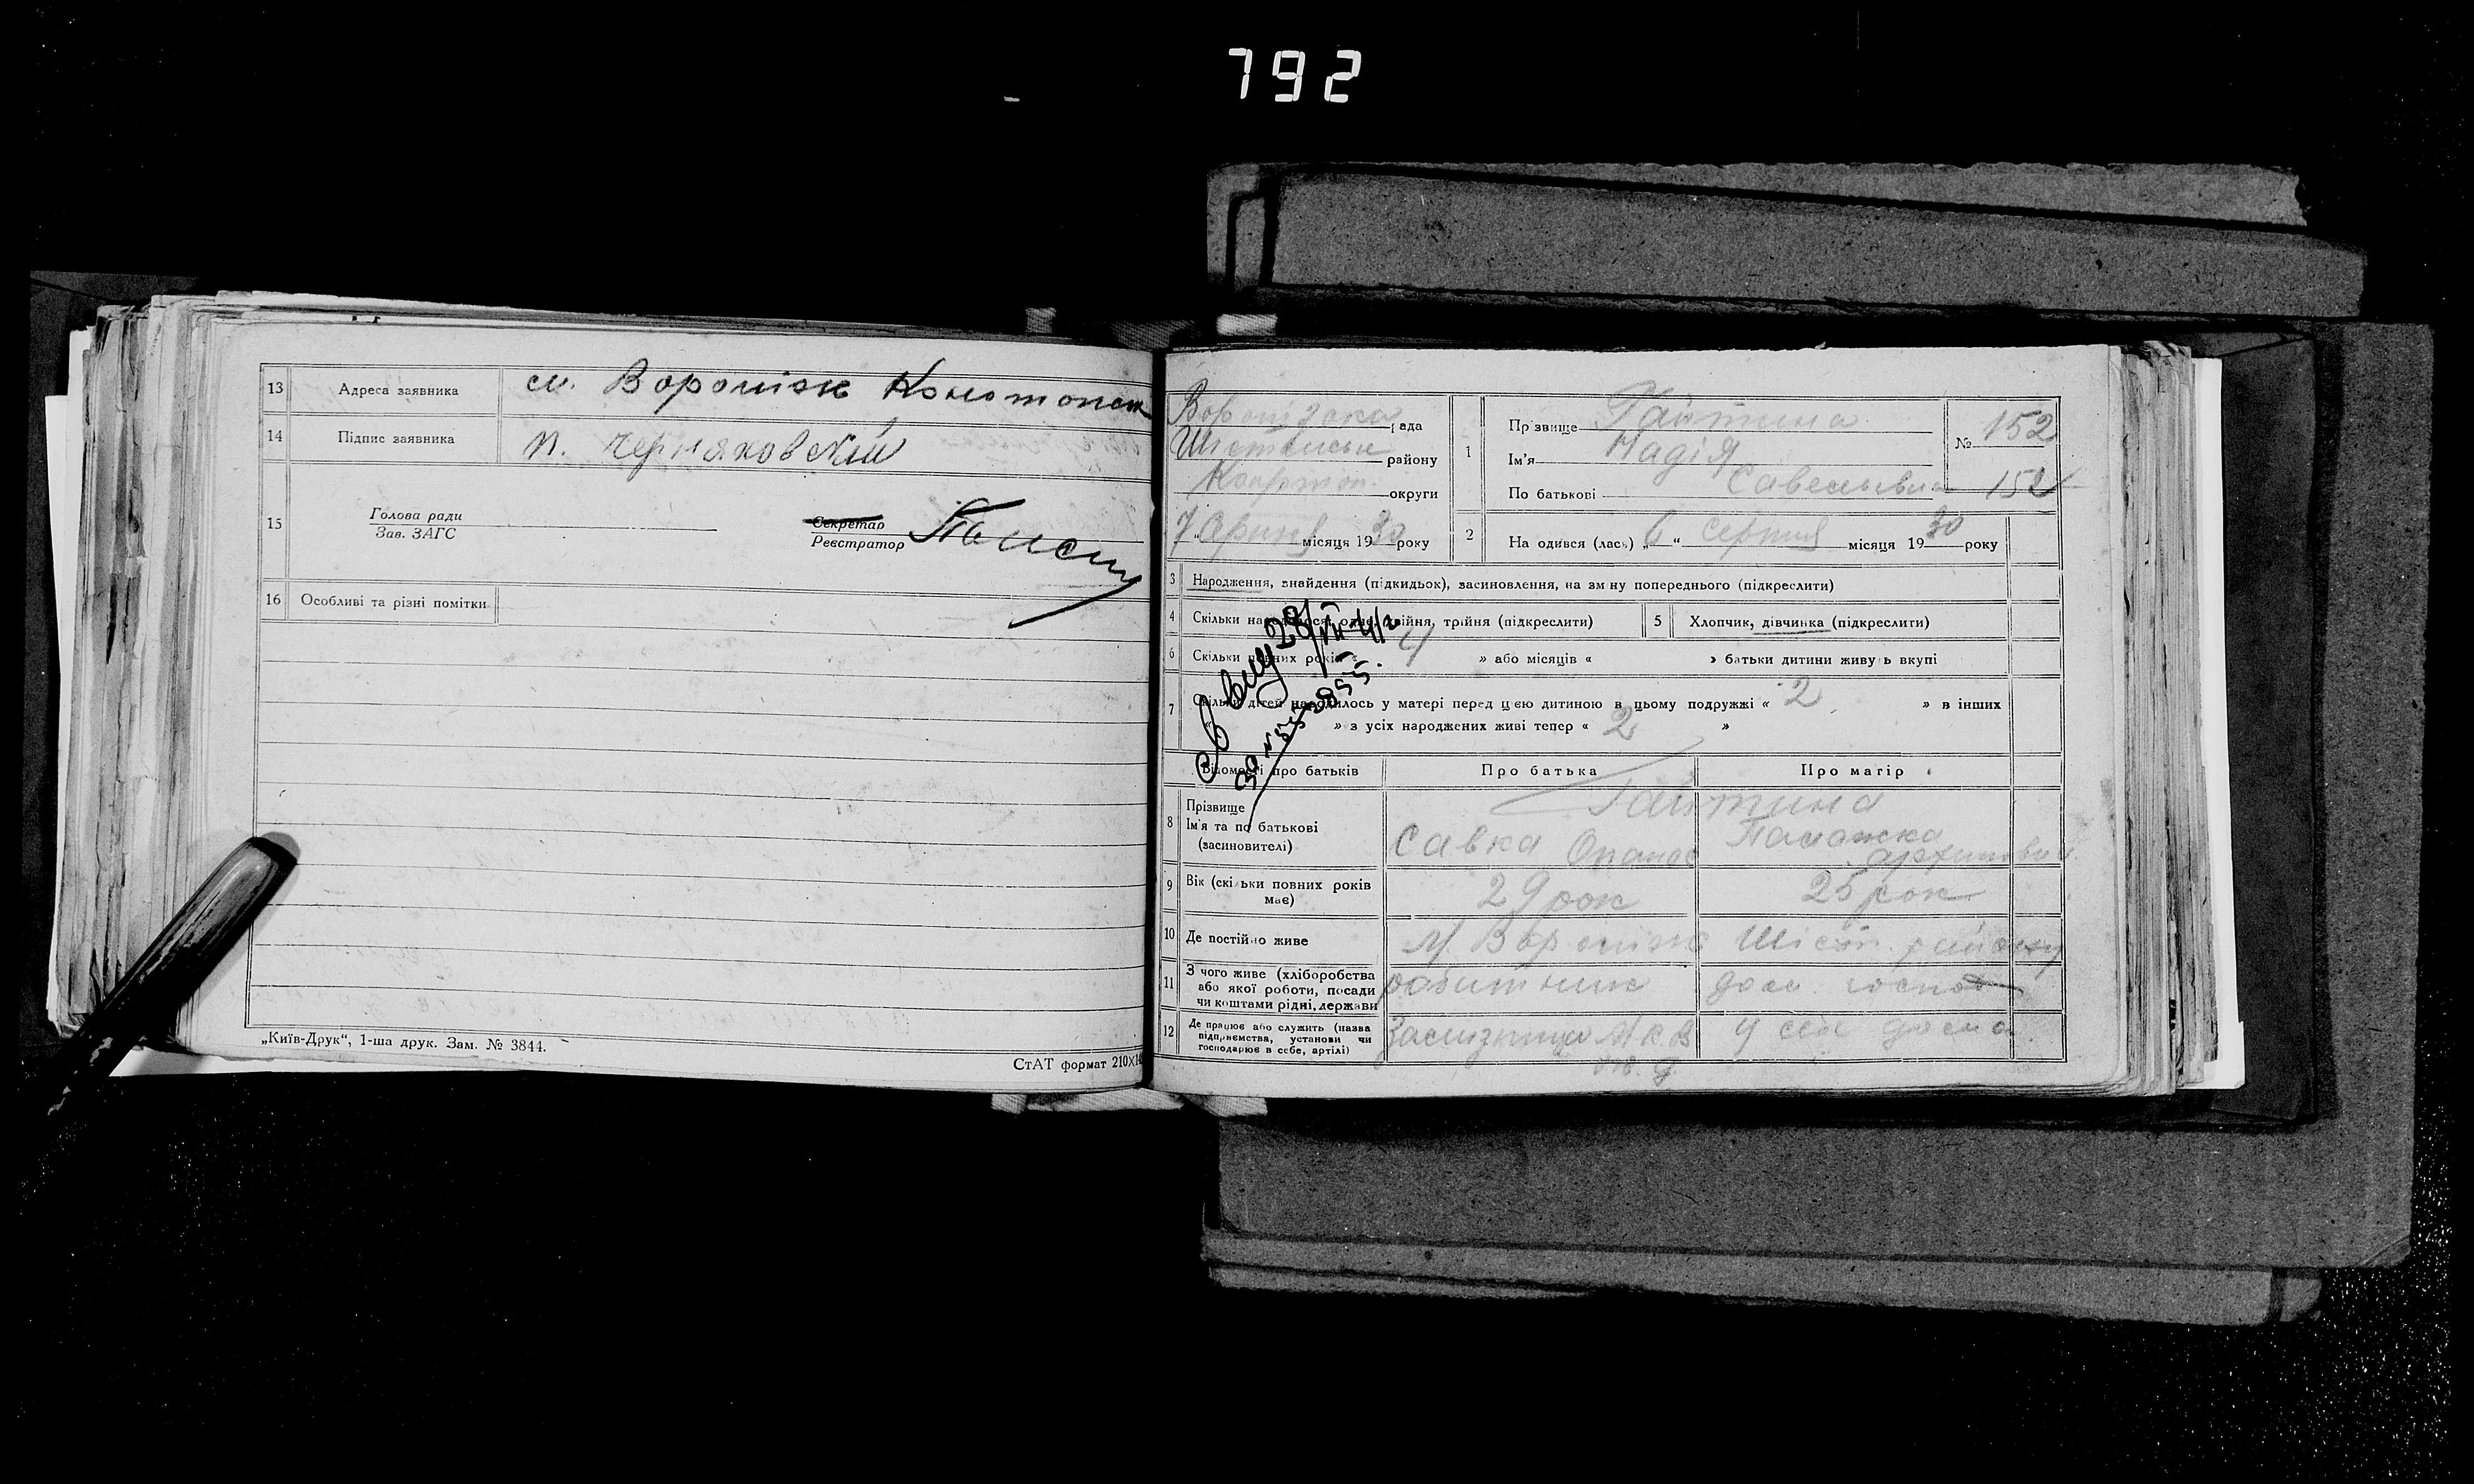 792
13 Адреса заявника м. Вороніж Конотопськ
14 Підпис заявника п. Черняховскій
15 Голова ради
Зав. ЗАГС
Секретар
Реєстратор
16 Особливі та різні помітки
„Київ-Друк“, 1-ша друк. Зам. № 3844.
СтАТ формат 210х14
рада
району
округи
місяця 1930 року
1 Прізвище Гайтина
Ім'я Надія
По батькові
№ 152
152
2 Народився (лась) „6“ серпня місяця 1930 року
3 Народження, знайдення (підкидьок), засиновлення, на зміну попереднього (підкреслити)
4 Скільки народилося: одне, двійня, трійня (підкреслити)
5 Хлопчик, дівчинка (підкреслити)
6 Скільки повних років « 4 » або місяців « » батьки дитини живуть вкупі
7 Скільки дітей народилось у матері перед цією дитиною в цьому подружжі « 2 » в інших
« » з усіх народжених живі тепер « 2 »
Відомості про батьків Про батька Про матір
8 Прізвище Гайтина
Ім'я та по батькові
(засиновителі)
Савка Опанас
9 Вік (скільки повних років має) 29 рок 25 рок
10 Де постійно живе м. Вороніж Шіст. району
11 З чого живе (хліборобства або якої роботи, посади чи коштами рідні, держави робитник дом. господ
12 Де працює або служить (назва підприємства, установи чи господарює в себе, артілі) Зализниця М.К.В у себя дома